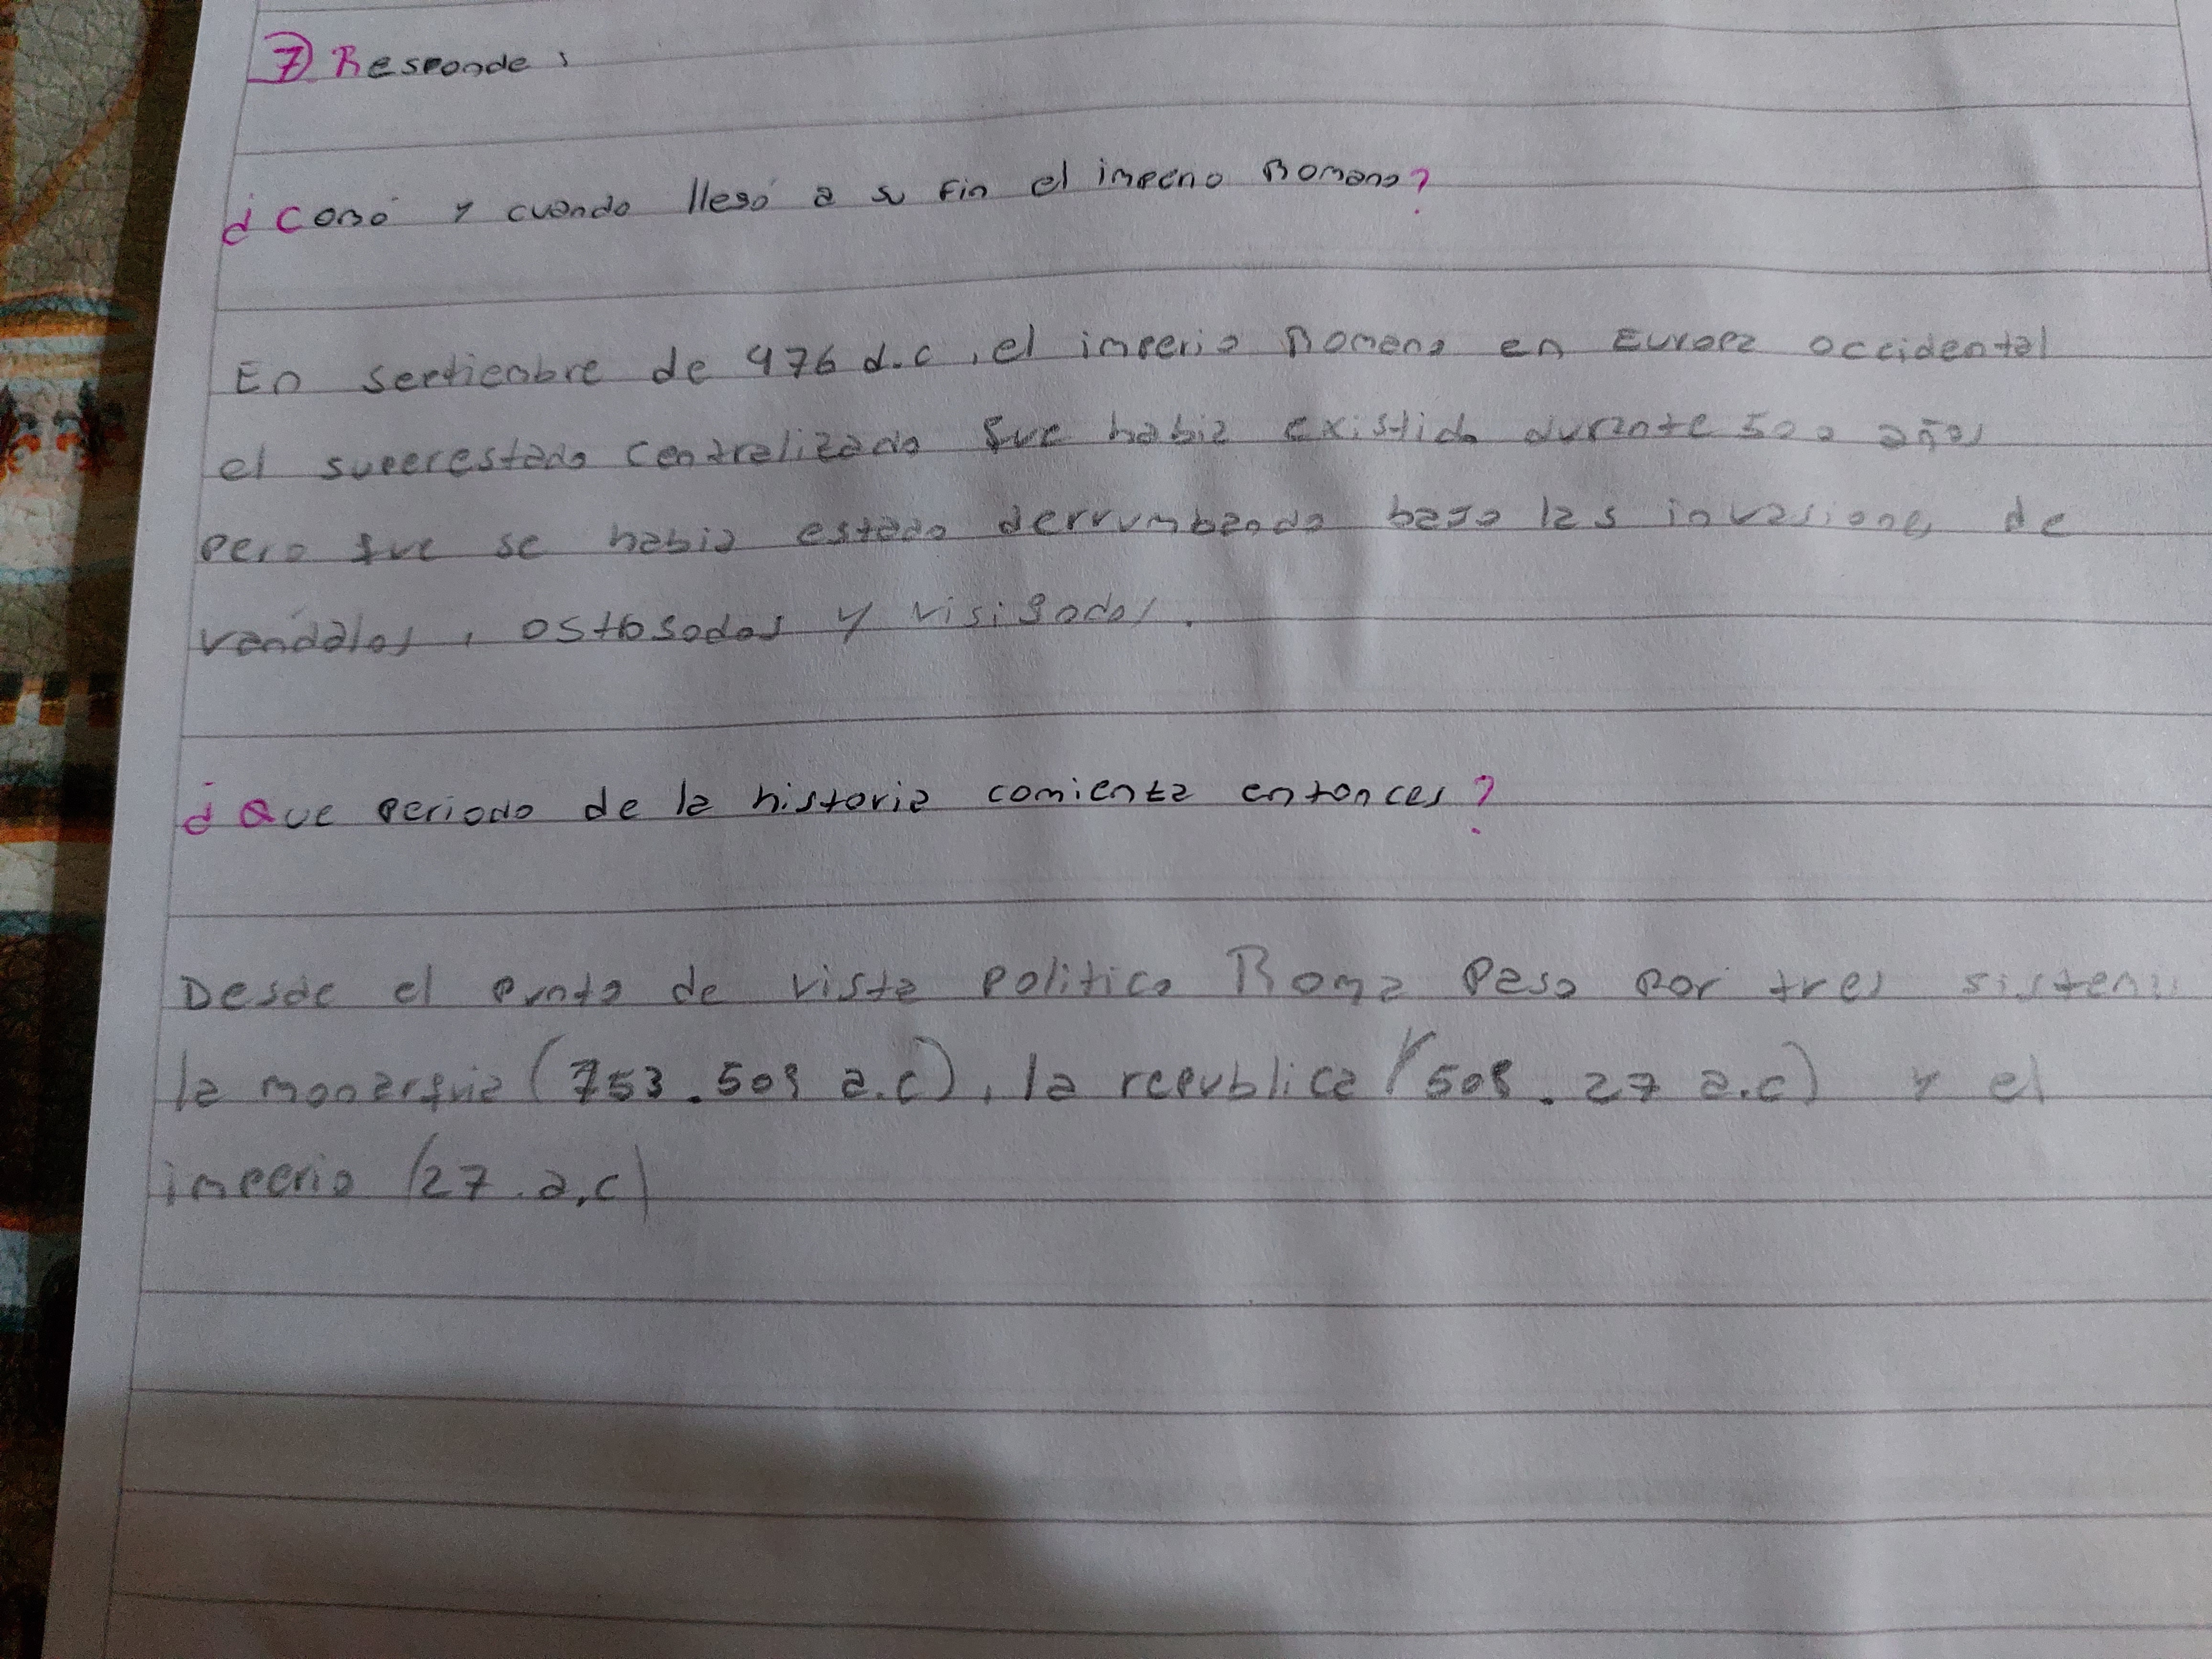 7 Responde:
¿Comó y cuando llegó a su fin el imperio Romano?
En septiembre de 476 d.c, el imperio Romano en Europa occidental
el superestado centralizado que habia existido durante 500 años
pero que se habia estado derrumbando bajo las invasiones de
vandalos, ostogodos y visigodos.
¿Que periodo de la historia comienza entonces?
Desde el punto de vista politico Roma Paso por tres sistemas
la monarquia (753.509 a.c), la republica (508.27 a.c) y el
imperio (27.a.c)